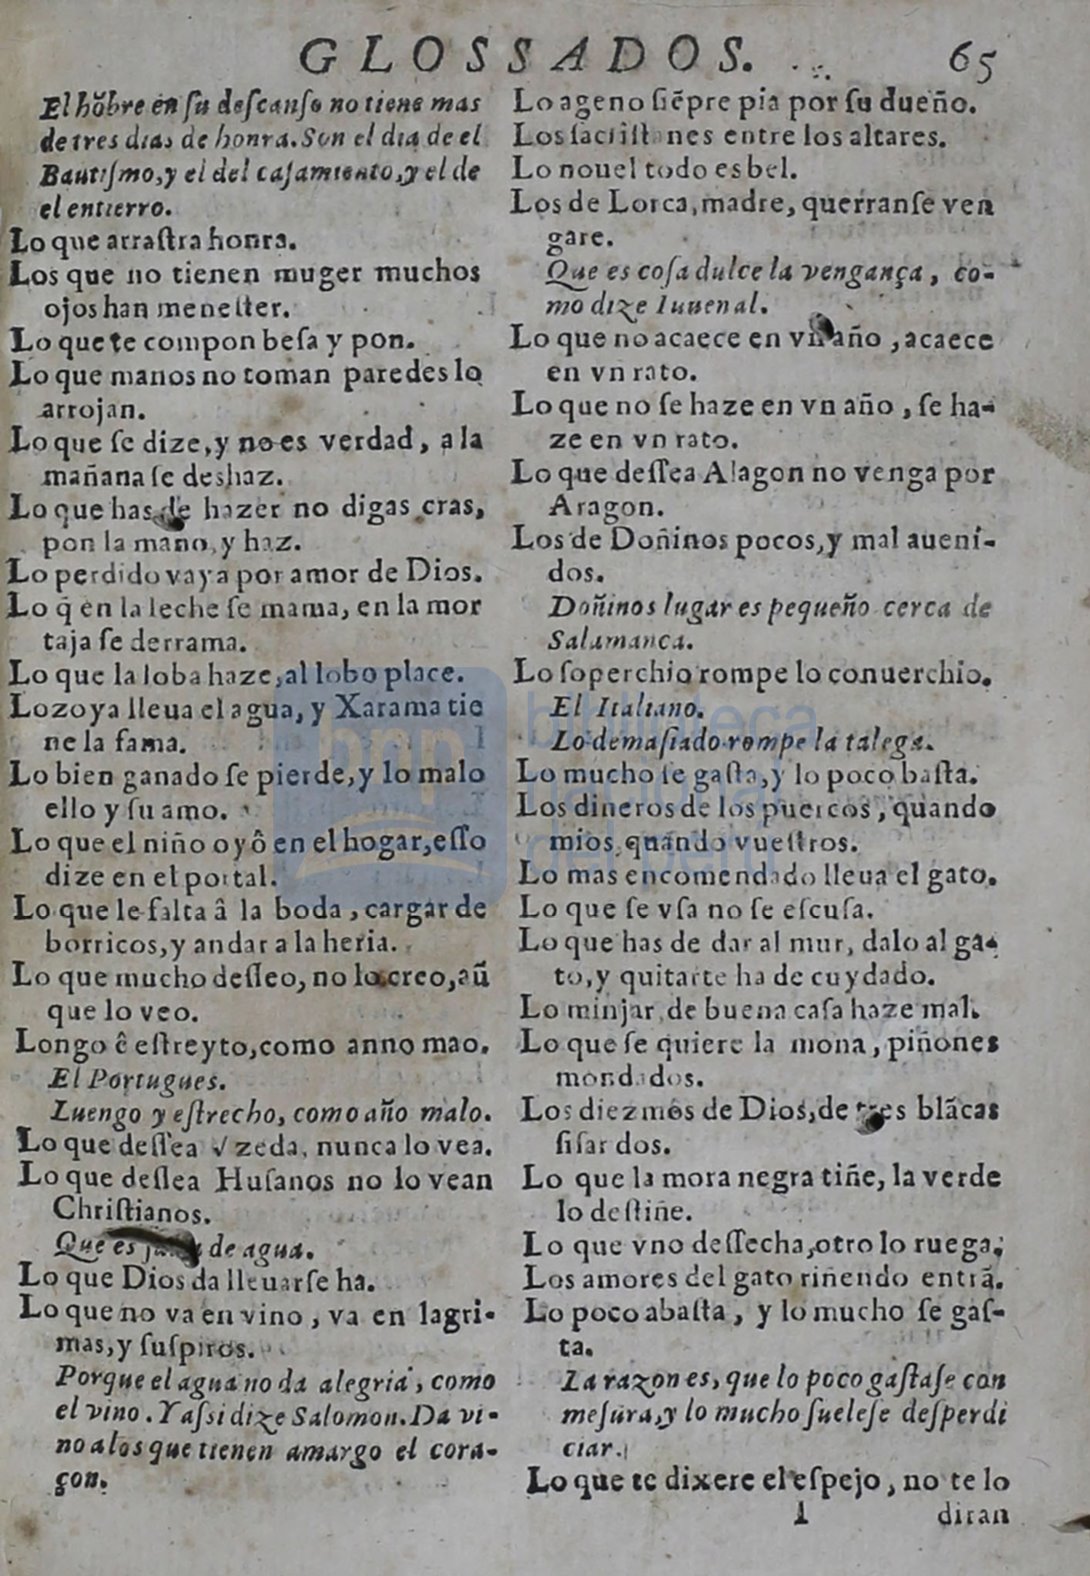 GLOSSADOS. 65
El hõbre en ſu deſcanſo no tiene mas
de tres dias de honra. Son el dia de el
Bautiſmo, y el del caſamiento, y el de
el entierro.
Lo que arraſtra honra.
Los que no tienen muger muchos
ojos han meneſter.
Lo que te compon beſa y pon.
Lo que manos no toman paredes lo
arrojan.
Lo que ſe dize, y no es verdad, a la
mañana ſe deshaz.
Lo que has de hazer no digas cras,
pon la mano, y haz.
Lo perdido vaya por amor de Dios.
Lo q̃ en la leche ſe mama, en la mor
taja ſe derrama.
Lo que la loba haze, al lobo place.
Lozoya lleua el agua, y Xarama tie
ne la fama.
Lo bien ganado ſe pierde, y lo malo
ello y ſu amo.
Lo que el niño oyô en el hogar, eſſo
dize en el portal.
Lo que le falta â la boda, cargar de
borricos, y andar a la heria.
Lo que mucho deſſeo, no lo creo, aũ
que lo veo.
Longo ê eſtreyto, como anno mao.
El Portugues.
Luengo y eſtrecho, como año malo.
Lo que deſſea zeda, nunca lo vea.
Lo que deſſea Huſanos no lo vean
Chriſtianos.
Que es de agua.
Lo que Dios da lleuarſe ha.
Lo que no va en vino, va en lagri-
mas, y ſuſpiros.
Porque el agua no da alegria, como
el vino. Y aſsi dize Salomon. Da vi-
no a los que tienen amargo el cora-
çon.
Lo ageno ſiẽpre pia por ſu dueño.
Los ſacriſtanes entre los altares.
Lo nouel todo es bel.
Los de Lorca, madre, querranſe ven
gare.
Que es coſa dulce la vengança, co-
mo dize Iuuenal.
Lo que no acaece en vn año, acaece
en vn rato.
Lo que no ſe haze en vn año, ſe ha-
ze en vn rato.
Lo que deſſea Alagon no venga por
Aragon.
Los de Doñinos pocos, y mal aueni-
dos.
Doñinos lugar es pequeño cerca de
Salamanca.
Lo ſoperchio rompe lo conuerchio.
El Italiano.
Lo demaſiado rompe la talega.
Lo mucho ſe gaſta, y lo poco baſta.
Los dineros de los puercos, quando
mios, quando vueſtros.
Lo mas encomendado lleua el gato.
Lo que ſe vſa no ſe eſcuſa.
Lo que has de dar al mur, dalo al ga-
to, y quitarte ha de cuydado.
Lo minjar de buena caſa haze mal.
Lo que ſe quiere la mona, piñones
mondados.
Los diezmos de Dios, de tres blãcas
ſiſar dos.
Lo que la mora negra tiñe, la verde
lo deſtiñe.
Lo que vno deſſecha, otro lo ruega.
Los amores del gato riñendo entrã.
Lo poco abaſta, y lo mucho ſe gaſ-
ta.
La razon es, que lo poco gaſtaſe con
meſura, y lo mucho ſueleſe deſperdi
ciar.
Lo que te dixere el eſpejo, no te lo
I diran
bnp biblioteca nacional del perú